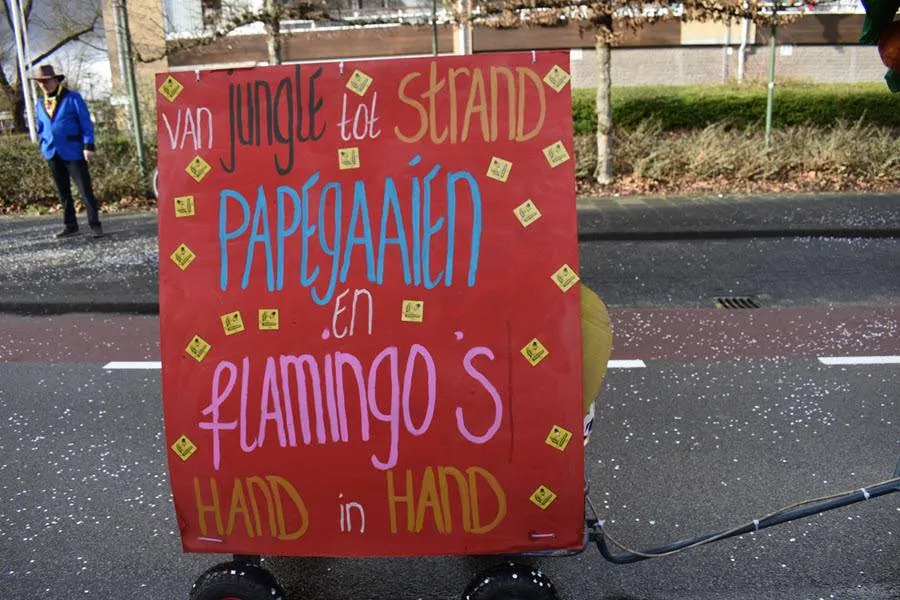 van jungle tot STRAND
PAPEGAAIÉN
EN
flamingo's
HAND in HAND